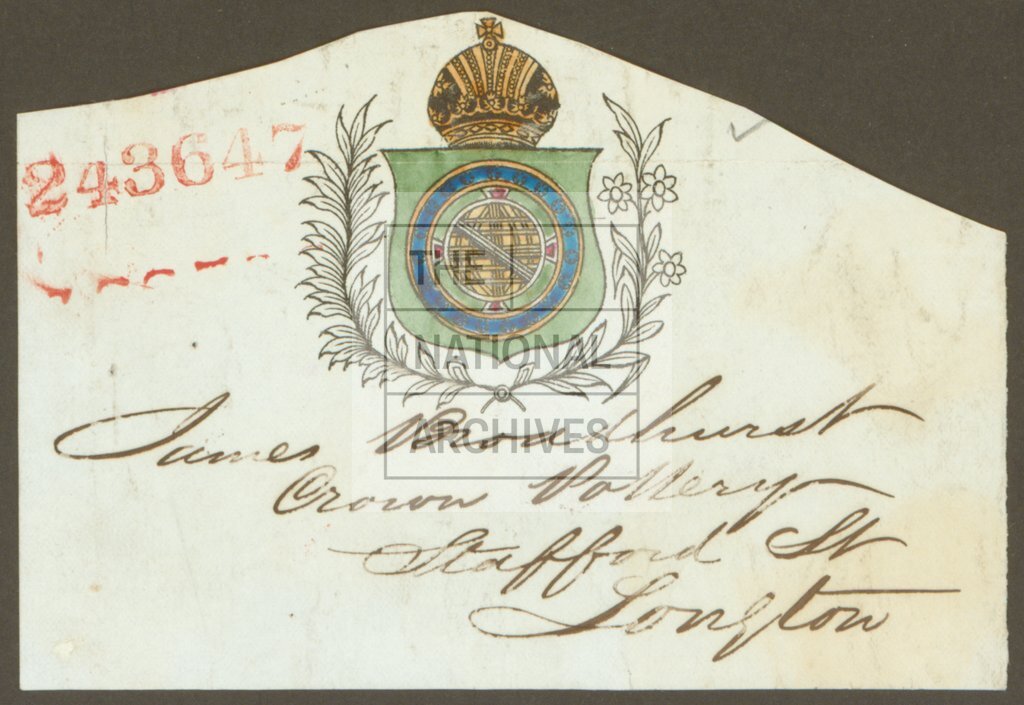 243647
THE
NATIONAL
ARCHIVES
James Broadhurst
Crown Pottery
Stafford St
Longton